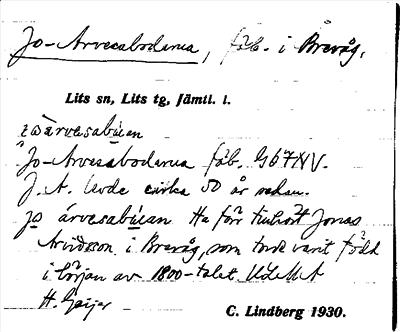 Jo-Arvesabodarna, fäb. i Brevåg,
Lits sn, Lits tg, Jämtl. l.
Jo-Arvesabodarna fäb. G67NV.
J. A. levde cirka 50 år sedan.
jo årvesabúan Ha för tillhört Jonas
Arvidsson i Brevåg, som torde varit född
i början av 1800-talet.
H. Geijer
C. Lindberg 1930.